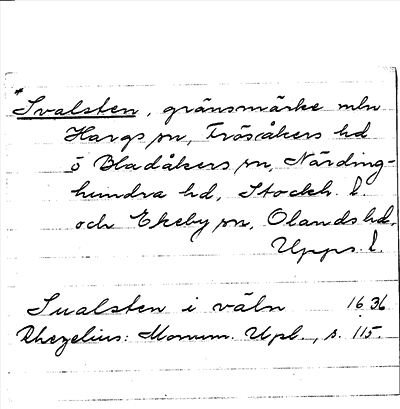 *Svalsten, gränsmärke mln
Hargs sn, Frösåkers hd
o Bladåkers sn, Närding-
hundra hd, Stockh. l.
och Ekeby sn, Olands hd,
Upps. l.
Sualsten i väln 1636
Rhezelius: Monum. Upl., s. 115.